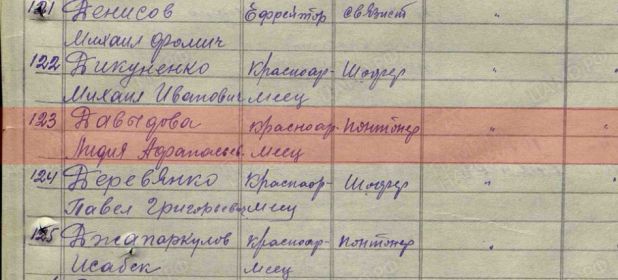 121 Денисов Ефрейтор связист
Михаил Фомич
122 Дикуненко Красноар- Шофер "
Михаил Иванович меец
123 Давыдова красноар- понтонер " "
Лидия Афанасьев. меец
124 Деревянко Красноар- Шофер "
Павел Григорьевич меец
125 Джапаркулов красноар- понтонер "
Исабек меец